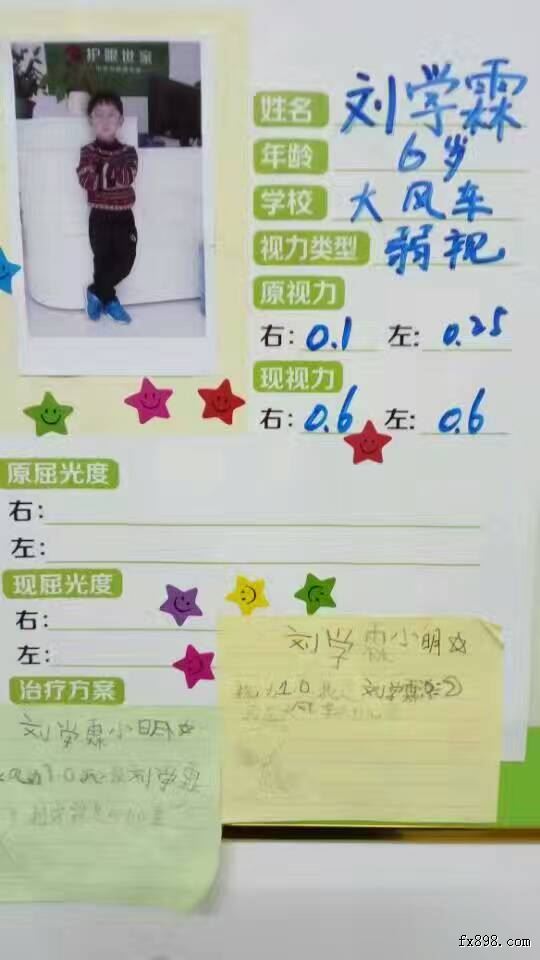 护眼世家
姓名 刘学霖
年龄 6岁
学校 大风车
视力类型 弱视
原视力
右: 0.1 左: 0.25
现视力
右: 0.6 左: 0.6
原屈光度
右:
左:
现屈光度
右:
左:
治疗方案
刘学霖小明
1.0 刘学霖
刘学霖小明
1.0 刘学霖
fx898.com